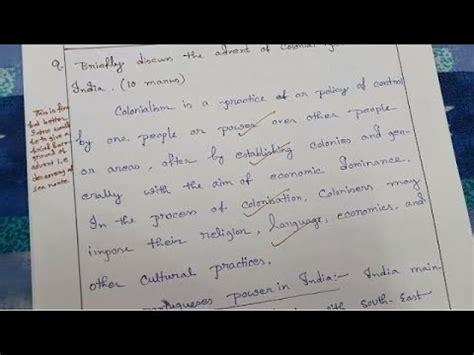 Q. Briefly discuss the advent of Colonial
India. (10 marks)
Colonialism is a practice or policy of control
by one people or power over other people
or areas, often by establishing colonies and gen-
erally with the aim of economic dominance.
In the process of colonisation, Colonisers may
impose their religion, language, economics, and
other cultural practices.
portugueses power in India:- India main-
with South-East
This is fine
but better
Intro would
be to give a
brief back-
ground of
advent i.e
discovery of
sea route.